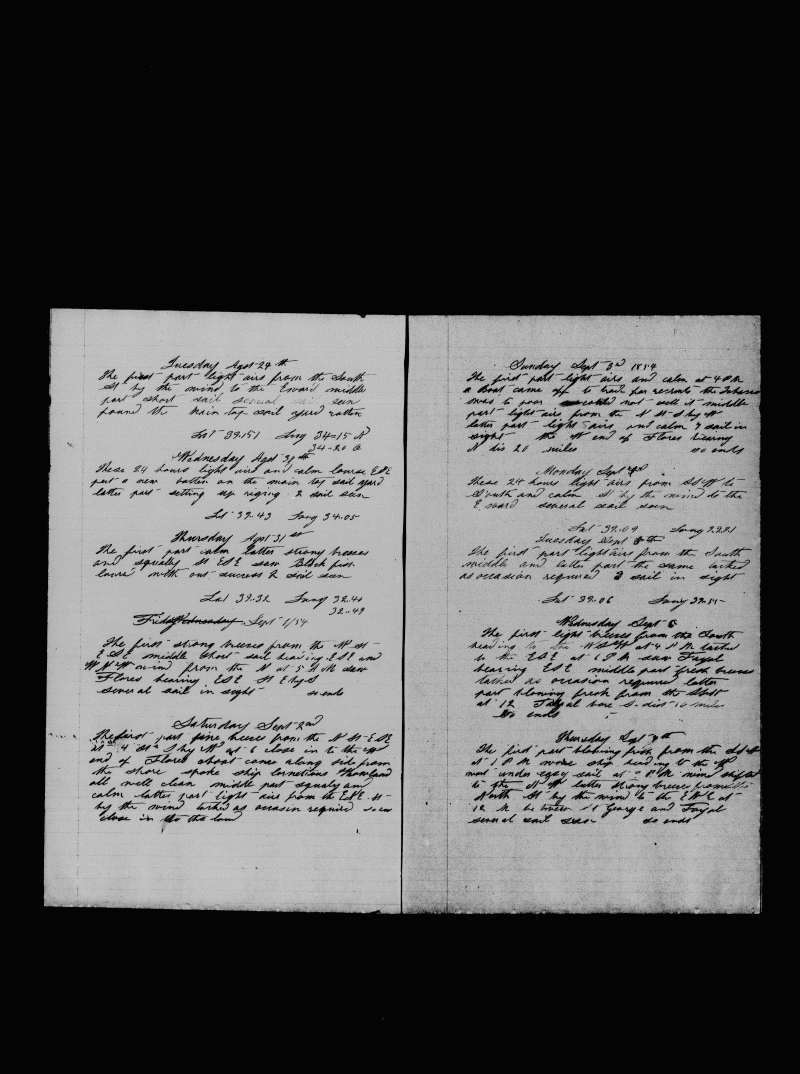 Tuesday Agst 29 th
The first part light airs from the South
St by the wind to the Eward middle
part short sail several sail seen
found the main top sail yard rotten
Lat 39.151 Long 34=15 N
34-20 C
Wednesday Agst 30 th
These 24 hours light airs and calm course ESE
put a new batten on the main top sail yard
latter part setting up riging 2 sail seen
Lat 39.43 Long 34.05
Thursday Agst 31 st
The first part calm latter strong breeses
and squally St ESE saw Black fish
lowrd with out success 2 sail seen
Lat 39.32 Long 32.40
32..49
Sept 1/54
The first strong breeses from the N St
ESE middle short sail heading ESE and
wind from the N at 5 A M saw
Flores bearing ESE St E by S
several sail in sight so ends
Saturday Sept 2nd
The first part fine breese from the N St ESE
at 4 St S by W at 6 close in to the W
end of Flores a boat came along side from
the shore spoke ship Howland
all well clean middle part squaly and
calm latter part light airs from the ENE St
by the wind tacked as occasion required so ends
close in to the land
Sunday Sept 3d 1854
The first part light airs and calm at 4 P M
a Boat came off to trade for recruits the Tobacco
was to poor could not sell it middle
part light airs from the N St S by W
latter part light airs and calm 7 sail in
sight the W end of Flores bearing
N dis 20 miles so ends
Monday Sept 4th
These 24 hours light airs from St W to
South and calm St by the wind to the
E ward several sail seen
Lat 39.09 Long
Tuesday Sept 5th
The first part light airs from the South
middle and latter part the same tacked
as occasion required 2 sail in sight
Lat 39.06 Long
Wednesday Sept 6
The first light breese from the South
heading to the WSW at 4 P M tacked
to the ESE at 6 P M saw Fayal
bearing ESE middle part fresh breese
tacked as occasion required latter
part blowing fresh from the
at 12 Fayal bore S dist 10 miles
so ends
Thursday Sept 7th
The first part blowing fresh from the
at 1 P M wore ship heading to the W
most under easy sail at P M wind shifted
to the N W latter strong breese from the
North St by the wind to the ENE at
12 M between St George and Fayal
several sail seen so ends